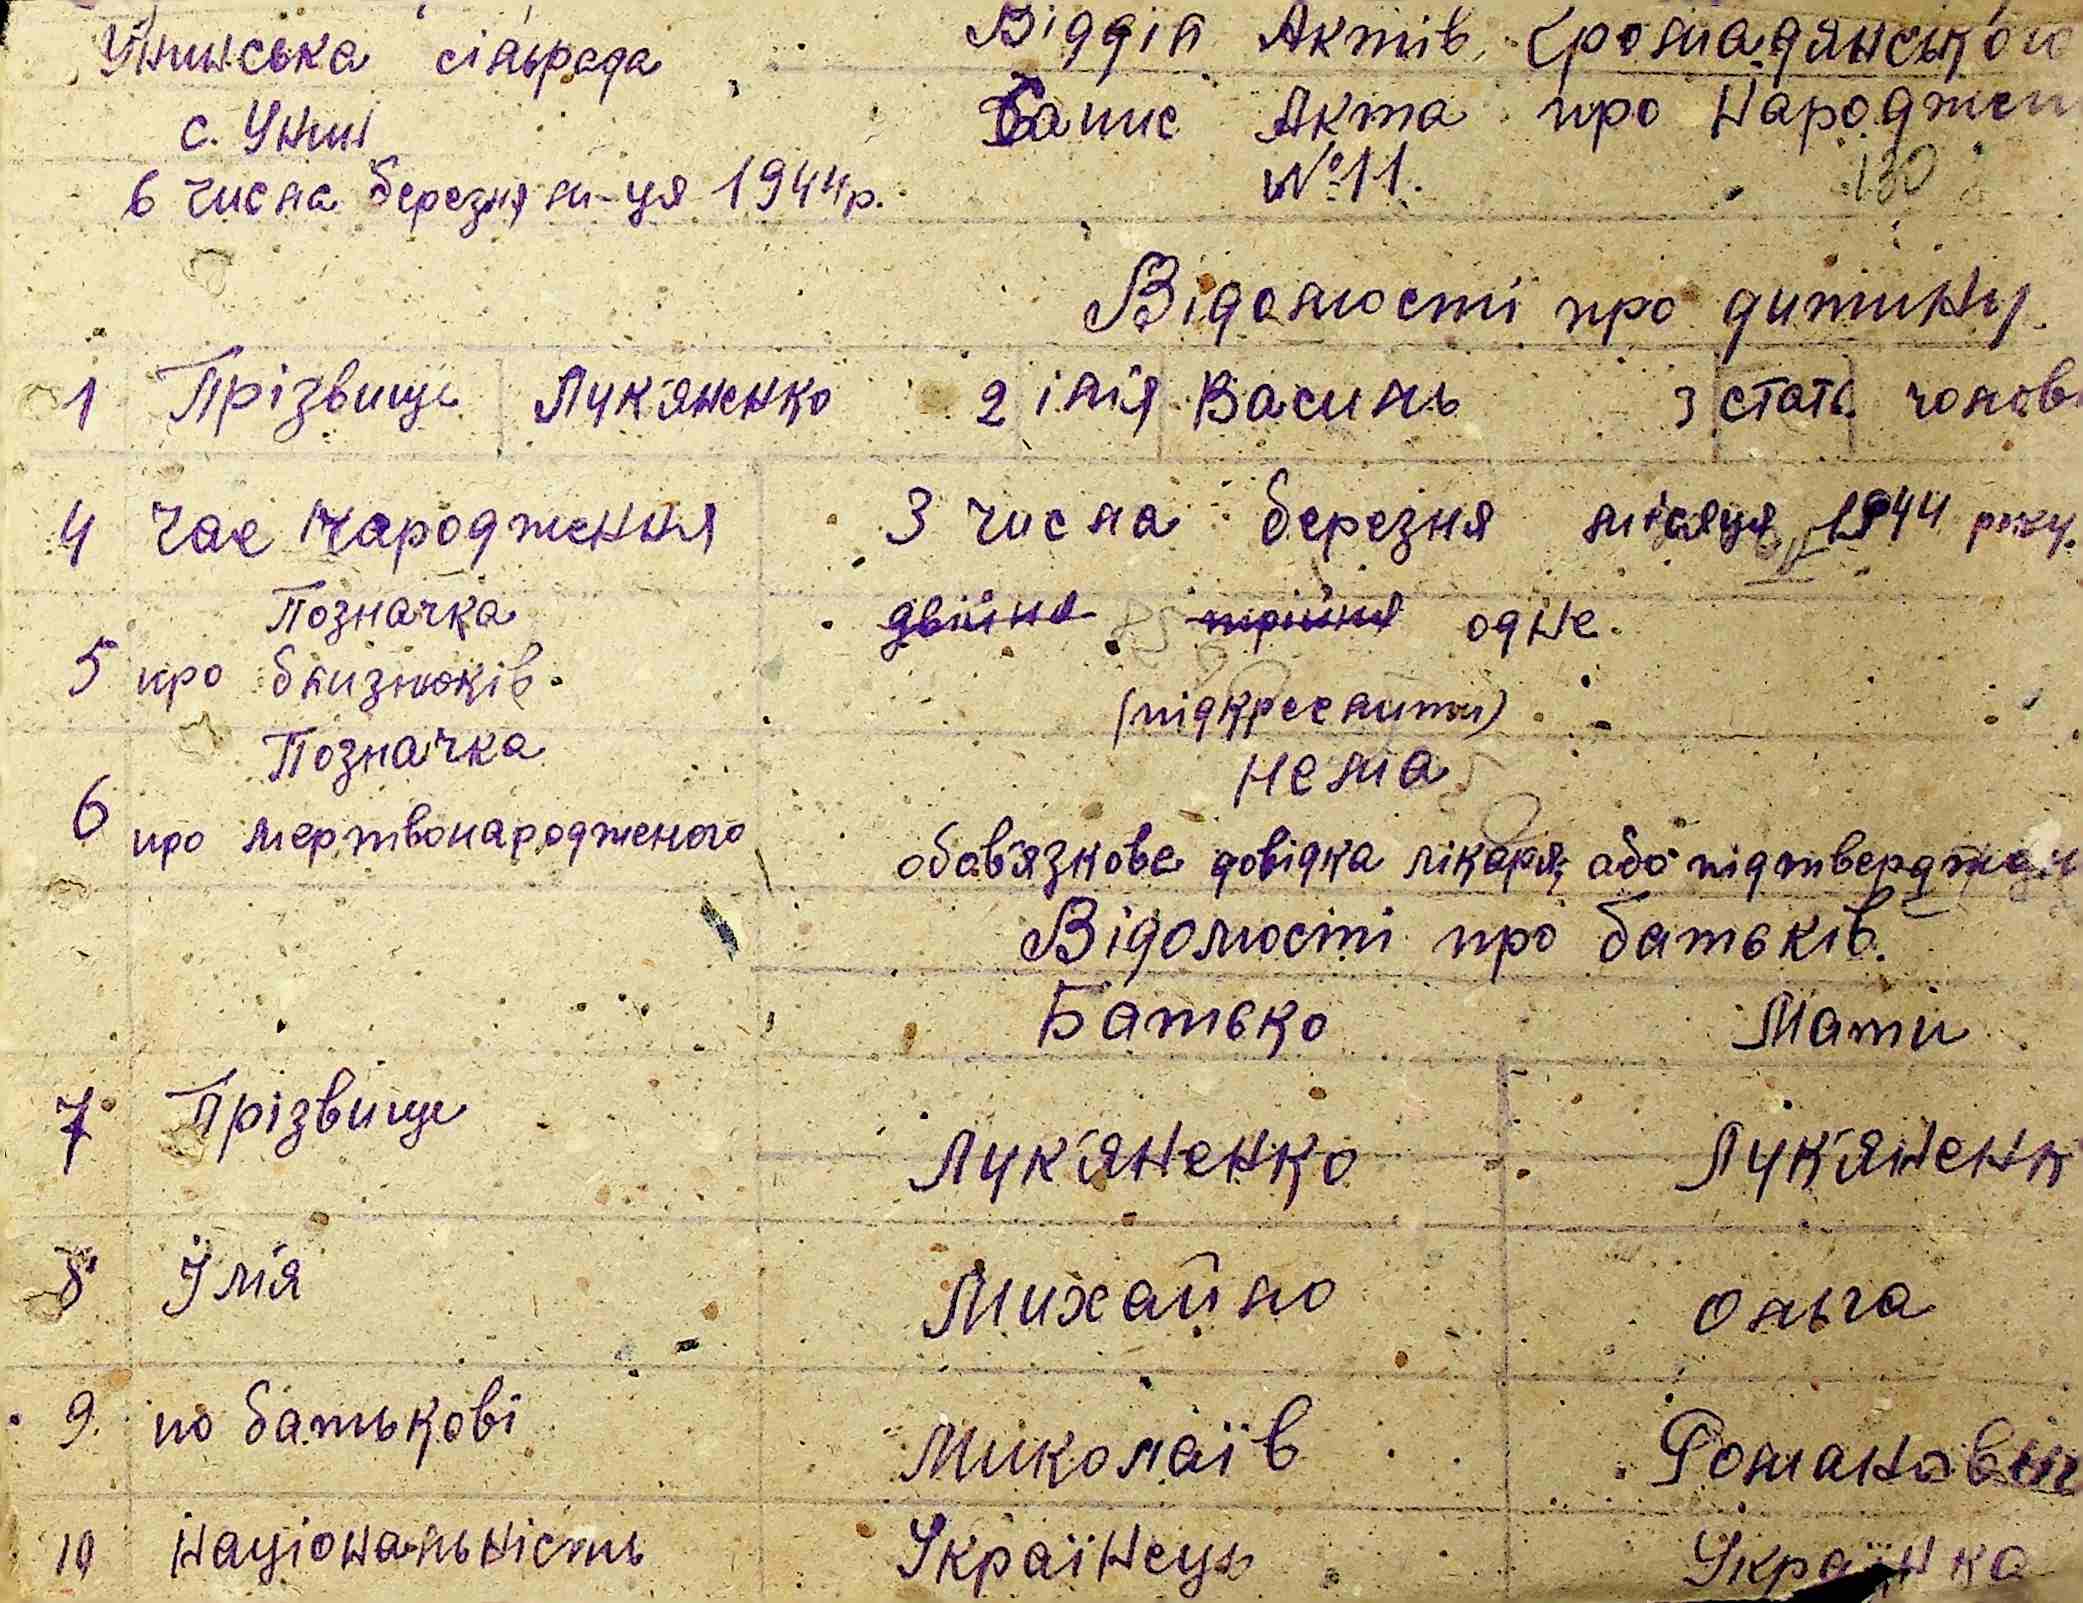 Унинська сільрада
Відділ Актів Громадянсько
с. Унин
Запис Акта про Народжен
6 числа березня м-ця 1944р.
№11.
130
Відомості про дитину.
1 Прізвище Лук'яненко 2 ім'я Василь 3 стать чолов
4 Час народження 3 числа березня місяця 1944 року.
Позначка
5 про близнюків.
двійня трійня одне.
(підкреслити)
Позначка
6 про мертвонародженого
нема
обов'язкова довідка лікаря, або підтверджен
Відомості про батьків.
Батько Мати
7 Прізвище Лук'яненко Лук'яненк
8 Ім'я Михайло Ольга
9. по батькові Миколаїв Романовн
10 національність Українець Українка